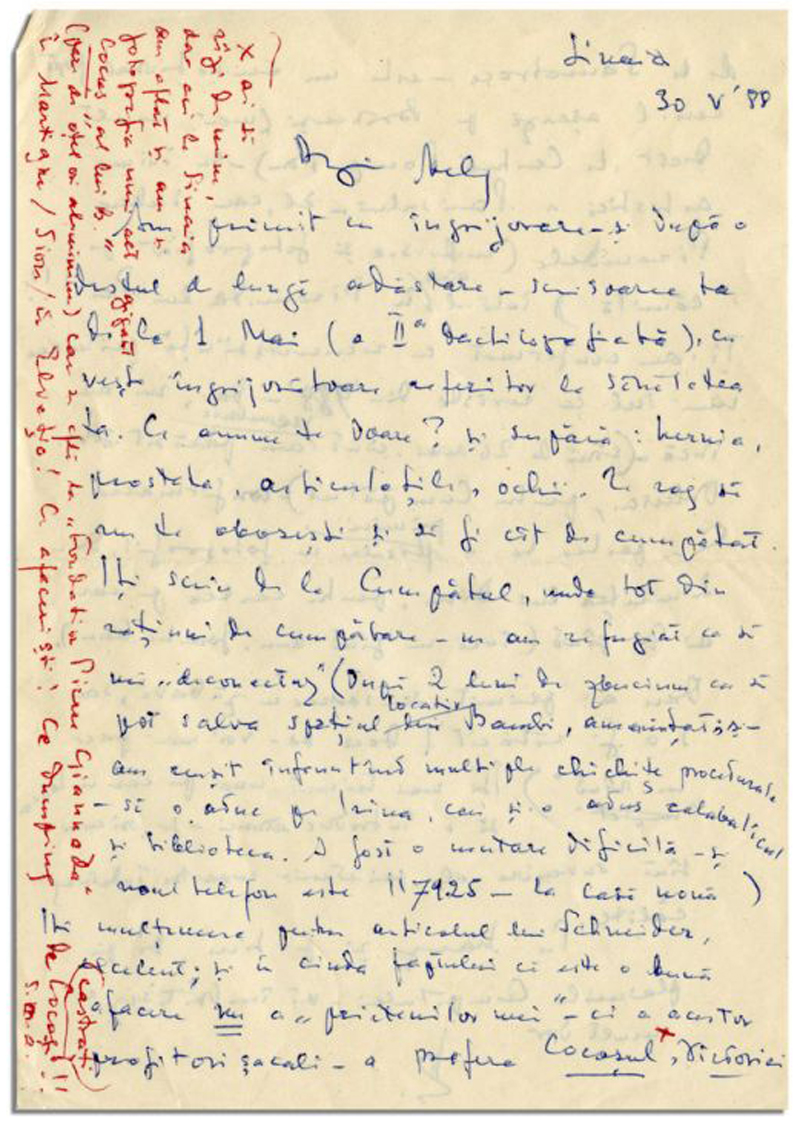 Sinaia
30 V '88
Dragă Nely
Am primit cu îngrijorare – și după o
destul de lungă adăstare – scrisoarea ta
de la 1 Mai (a IIa dactilografiată), cu
vești îngrijorătoare referitor la sănătatea
ta. Ce anume te doare? și supără: hernia,
prostata, articulațiile, ochii. Te rog să
nu te obosești și să fii cât de cumpătat.
Îți scriu de la Cumpătul, unde tot din
rațiuni de cumpătare – m-am refugiat ca să
mă „deconectez" (după 2 luni de zbucium ca să
pot salva spațiul locativ Bambi, amenințat, și –
am reușit înfruntând multiple chichițe procedurale
– să o aduc pe Irina, care și-o adus calabalîcul
și biblioteca. A fost o mutare dificilă – și
noul telefon este 117925 – la casă nouă)
Îți mulțumesc pentru articolul lui Schneider,
excelent; și în ciuda faptului că este o bună
afacere nu a „prietenilor mei" – ci a acestor
profitori șacali – a prefera Cocoșul x, Victoriei
x ai să
râzi de mine,
dar aici la Sinaia
am aflat și am și
fotografia unui act gigant
Cocoș al lui B.
(de oțel ori aluminiu) care se află la „Fondation Pierre Gianadda"
în Martigny / Sion / în Elveția! Ce afaceriști! Ce dumping
de Cocoși!!
(castrați)
s.m.a.